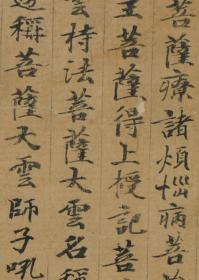 菩薩療諸煩惱病菩薩
王菩薩得上授記菩
雲持法菩薩大雲名稱
遊稱菩薩大雲師子吼